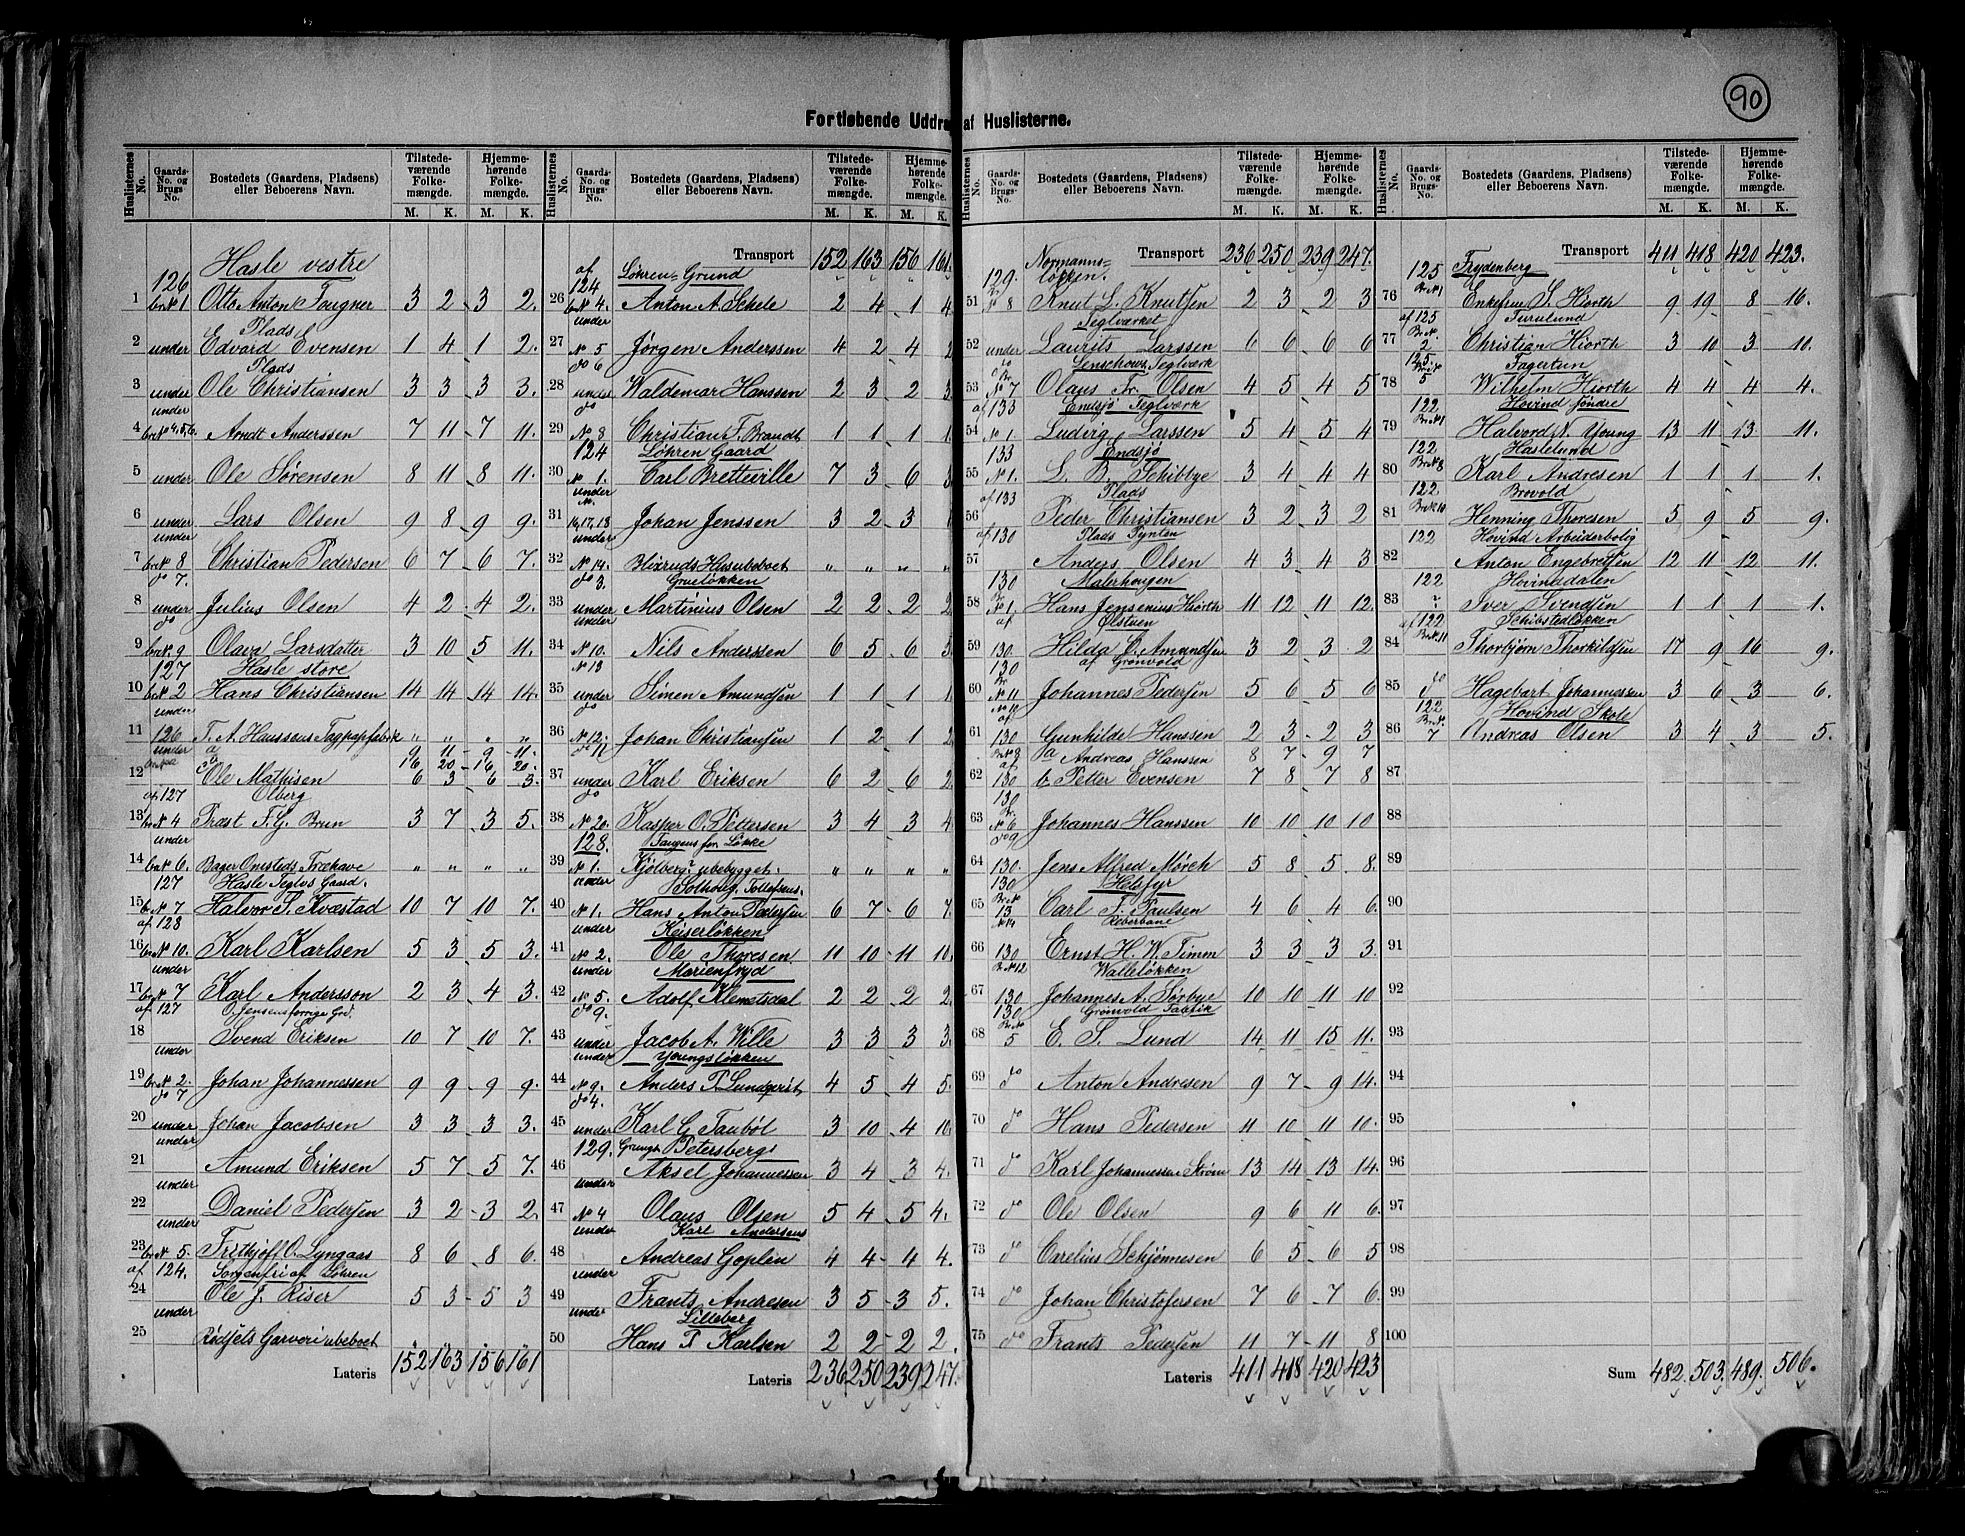 90
Fortløbende Uddrag af Huslisterne.
Huslisternes No. Gaards-No. og Brugs-No. Bostedets (Gaardens, Pladsens) eller Beboerens Navn. Tilstedeværende Folkemængde. Hjemmehørende Folkemængde.
M. K. M. K.
126 Hasle vestre
1 br No 1 Otto Anton Fougner 3 2 3 2.
Plads
2 under Edvard Evensen 1 4 1 2.
Plads
3 under Ole Christiansen 3 3 3 3.
under
4 br No 4,5,6. Arndt Anderssen 7 11 7 11.
5 under Ole Sørensen 8 11 8 11.
6 under Lars Olsen 9 8 9 9.
under
7 br No 8 Christian Pedersen 6 7 6 7.
do 7.
8 under Julius Olsen 4 2 4 2.
do
9 br No 9 Olava Larsdatter 3 10 5 11.
127 Hasle store
10 br No 2 Hans Christiansen 14 14 14 14.
under
11 126 T. A. Hanssens Tagpapfabrik " " " "
under a 9 11 9 11.
16 20 16 20.
12 Ole Mathisen 6 3 6 3.
af 127 Olberg
13 br No 4 Præst F. G. Brun 3 7 3 5.
under
14 br No 6. Bager Onsteds Træhave " " " "
127 Hasle Teglvs Gaard.
15 br No 7 Halvor S. Kvæstad 10 7 10 7.
af 128
16 br No 10. Karl Karlsen 5 3 5 3.
under
17 br No 7 Karl Andersson 2 3 4 3.
af 127 O. Jensens forrige Grd.
18 Svend Eriksen 10 7 10 7.
under
19 br No 2. Johan Johannessen 9 9 9 9.
do 7
20 under Johan Jacobsen 3 3 3 3.
under
21 Amund Eriksen 5 7 5 7.
under
22 Daniel Pedersen 3 2 3 2.
under
23 br No 5. Frithjof O. Lyngaas 8 6 8 6.
af 124. Sorgenfri af Løhren
24 Ole J. Riser 5 3 5 3
under
25 Rødsets Garveri ubeboet
Lateris 152 163 156 161
Huslisternes No. Gaards-No. og Brugs-No. Bostedets (Gaardens, Pladsens) eller Beboerens Navn. Tilstedeværende Folkemængde. Hjemmehørende Folkemængde.
M. K. M. K.
Transport 152 163 156 161.
af 124 Løhren-Grund
26 No 4. Anton A. Schele 2 4 1 4
under
27 No 5 Jørgen Anderssen 4 2 4 2
do 6
28 under Waldemar Hanssen 2 3 2 3
do
29 No 8 Christian F. Brandt 1 1 1 1
124 Løhren Gaard
30 No 1. Carl Bretteville 7 3 6 3
under
31 16,17,18 Johan Jenssen 3 2 3 1
under
32 No 14. Blixruds Hus ubeboet " " " "
do 3. Grueløkken
33 under Martinius Olsen 2 2 2 2
under
34 No 10. Nils Anderssen 6 5 6 5
No 13
35 under Simen Amundsen 1 1 1 1
do
36 No 12. Johan Christiansen 1 2 1 2
do 11
37 under Karl Eriksen 6 2 6 2
do
38 No 20. Kasper O. Pettersen 3 4 3 4
128. Taugens for Løkke
39 No 1. Kjølberg? ubebygget. " " " "
under Solhoug, Tollefsens.
40 No 1. Hans Anton Pedersen 6 7 6 7
under Keiserløkken
41 No 2. Ole Thoresen 11 10 11 10.
under Marienfryd
42 No 5. Adolf Klemetsdal 2 2 2 2
do 9.
43 under Jacob A. Wille 3 3 3 3
under Youngsløkken
44 No 9. Anders P. Lundqvist 4 5 4 5.
do 4.
45 under Karl G. Taubøl 3 10 4 10
129. Petersberg
46 Aksel Johannessen 3 4 3 4.
under
47 No 4 Olaus Olsen 5 4 5 4.
under Karl Andersens
48 Andreas Goplen 4 4 4 4.
under
49 Frants Andresen 3 5 3 5.
under Lilleberg
50 Hans P Karlsen 2 2 2 2.
Lateris 236 250 239 247.
Huslisternes No. Gaards-No. og Brugs-No. Bostedets (Gaardens, Pladsens) eller Beboerens Navn. Tilstedeværende Folkemængde. Hjemmehørende Folkemængde.
M. K. M. K.
Transport 236 250 239 247.
129. Normannsløkken.
51 No 8 Knut L. Knutsen 2 3 2 3
Teglværket
52 under Laurits Larssen 6 6 6 6
do Jenschows Teglværk
53 No 7 Olaus Fr. Olsen 4 5 4 5
af 133 Endsjø Teglværk
54 No 1. Ludvig Larssen 5 4 5 4
133 Endsjø
55 No 1. L. B. Schibbye 3 4 4 4
af 133 Plads
56 Peder Christiansen 3 2 3 2
af 130 Plads Tynten
57 Anders Olsen 4 3 4 3
130 Malerhaugen
58 No 1. Hans Jensenius Hiorth 11 12 11 12.
af Ølstuen
59 130. Hilda C. Amundsen 3 2 3 2
130 af Grønvold
60 No 11 Johannes Pedersen 5 6 5 6
No 10 af
61 130 Gunhilde Hanssen 2 3 2 3
Br No 8 af a Andreas Hanssen 8 7 9 7
62 130 b Petter Evensen 7 8 7 8
130
63 No 6 Johannes Hanssen 10 10 10 10
do 9.
64 130. Jens Alfred Mörch 5 8 5 8.
130 Helsfyr
65 Br No 13 Carl F. Paulsen 4 6 4 6.
No 14 Reberbane
66 130 Ernst H. W. Timm 3 3 3 3.
Br No 12 Walleløkken
67 130 Johannes A. Sørbye 10 10 11 10
130 Grønvold Fabrik
68 Br No 5 E. S. Lund 14 11 15 11.
69 do Anton Andresen 9 7 9 14.
70 do Hans Pedersen 11 10 11 10.
71 do Karl Johannessen Strøm 13 14 13 14.
72 do Ole Olsen 9 6 11 6.
73 do Carelius Schjønnesen 6 5 6 5
74 do Johan Christofersen 7 6 7 6.
75 do Frants Pedersen 11 7 11 8
Lateris 411 418 420 423
Huslisternes No. Gaards-No. og Brugs-No. Bostedets (Gaardens, Pladsens) eller Beboerens Navn. Tilstedeværende Folkemængde. Hjemmehørende Folkemængde.
M. K. M. K.
Transport 411 418 420 423.
125 Frydenberg
76 Br No 1 Enkefru S. Hiorth 9 19 8 16.
af 125 Furulund
77 Br No 2 Christian Hiorth 3 10 3 10.
125. Fagertun
78 Br No 5 Wilhelm Hiorth 4 4 4 4.
122. Hovind søndre
79 Br No 1 Halvord N. Young 13 11 13 11.
122 Haslelund
80 Br No 8 Karl Andresen 1 1 1 1.
122 Brovold
81 Br No 10 Henning Thoresen 5 9 5 9.
122 Hovind Arbeiderbolig
82 Anton Engebretsen 12 11 12 11.
122 Hovinsdalen
83 ? Iver Svendsen 1 1 1 1.
af 122 Schibstedløkken
84 Br No 11 Thorbjørn Thorkildsen 17 9 16 9.
85 do Hagebart Johannessen 3 6 3 6.
122 Hovind Skole
86 Br No 7 Andreas Olsen 3 4 3 5.
87
88
89
90
91
92
93
94
95
96
97
98
99
100
Sum 482. 503. 489. 506.